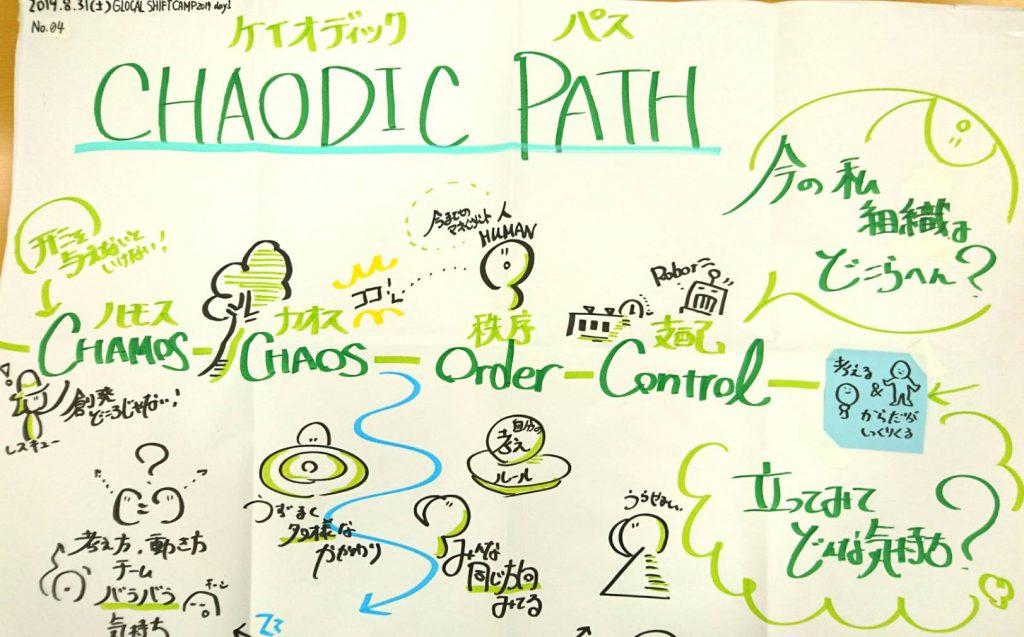 2019.8.31(土) GLOCAL SHIFTCAMP2019 day1
No.04
ケイオディック パス
CHAODIC PATH
今の私
組織は
どこらへん?
形を
与えないと
いけない!
今までの
マネジメント
人
HUMAN
ココ!
Robot
カオス
秩序
支配
CHAMOS
CHAOS
Order
Control
考える
&
からだが
しっくりくる
レスキュー
創発
どころじゃない!
?
考え方、動き方
チーム
バラバラ
気持ち
うずまく
多様な
かかわり
自分の
考え
ルール
みんな
同じ方向
みてる
立ってみて
どんな気持ち?